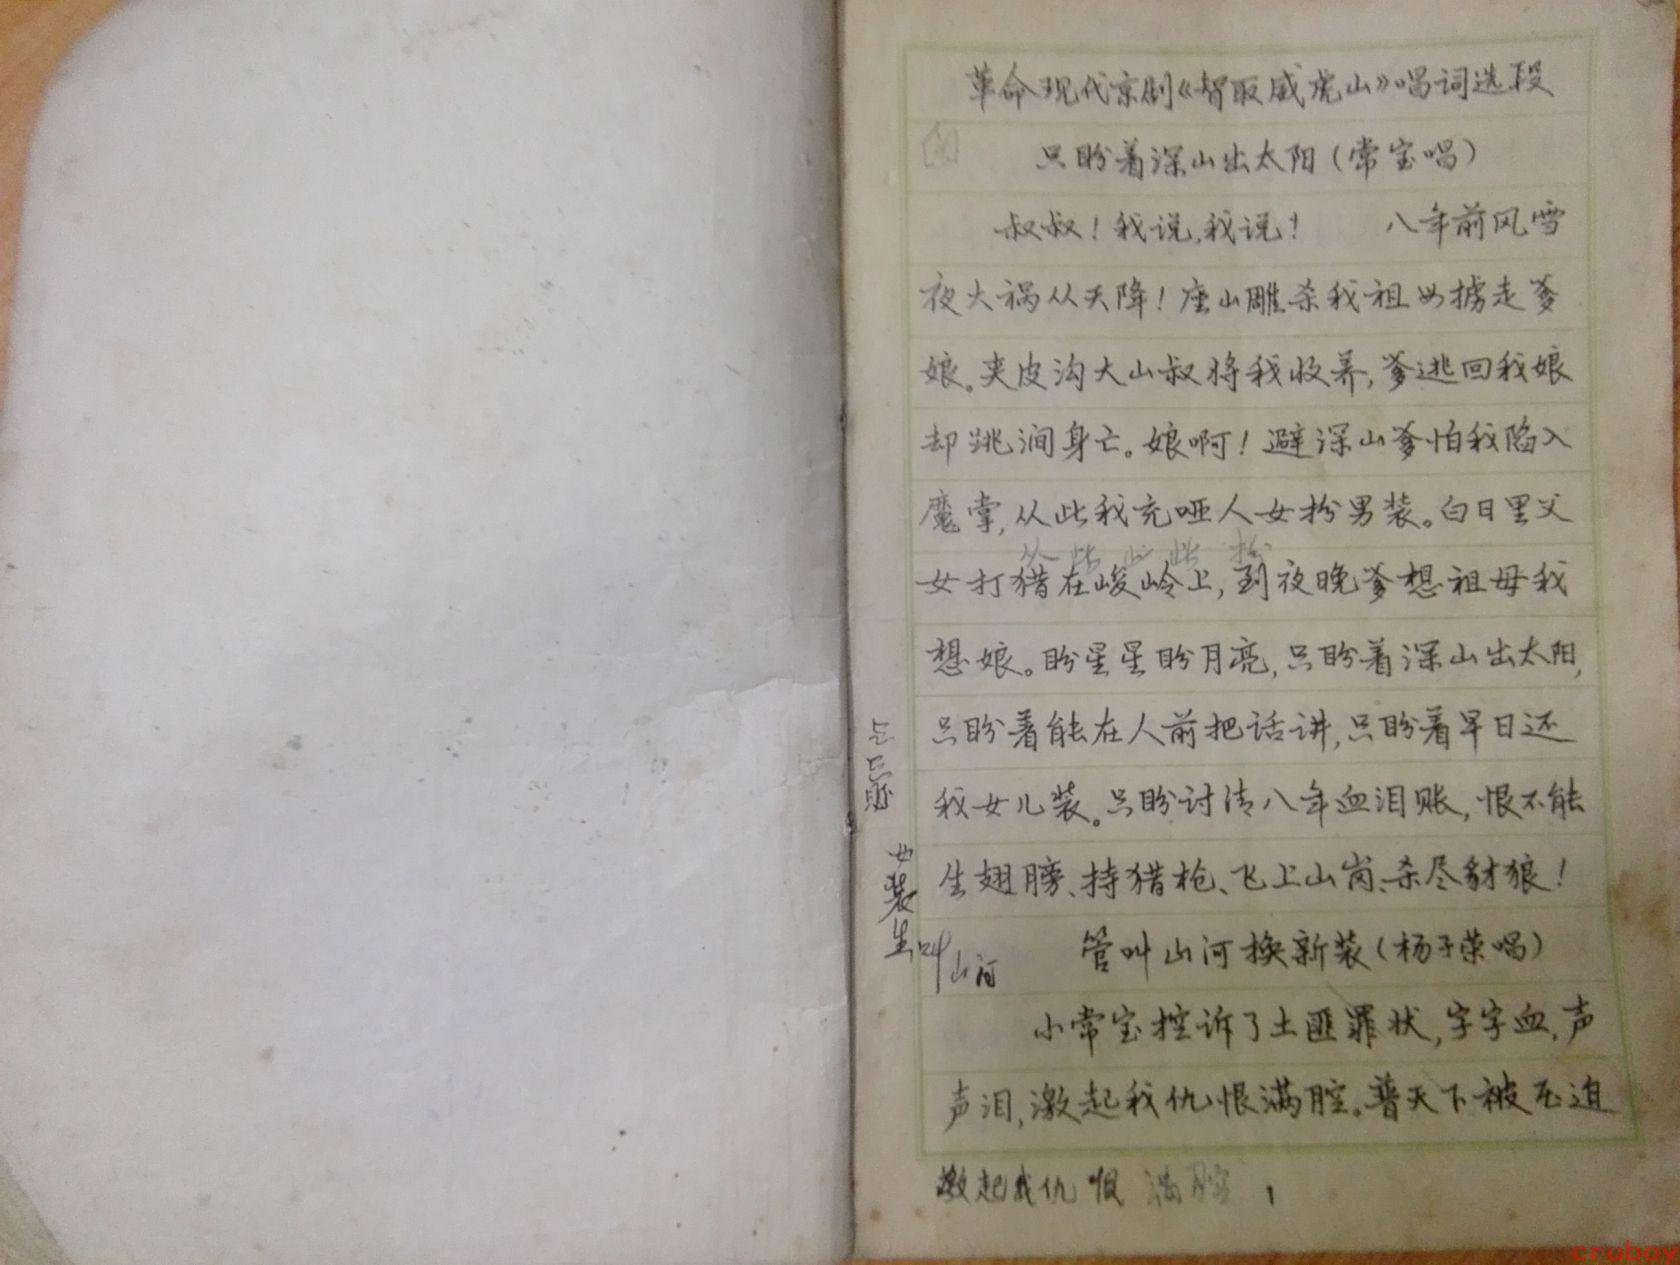 革命现代京剧《智取威虎山》唱词选段
只盼着深山出太阳(常宝唱)
叔叔！我说,我说！ 八年前风雪
夜大祸从天降！座山雕杀我祖母掳走爹
娘。夹皮沟大山叔将我收养,爹逃回我娘
却跳涧身亡。娘啊！避深山爹怕我陷入
魔掌,从此我充哑人女扮男装。白日里父
从此 此 扮
女打猎在峻岭上,到夜晚爹想祖母我
想娘。盼星星盼月亮,只盼着深山出太阳,
只盼着能在人前把话讲,只盼着早日还
我女儿装。只盼讨清八年血泪账,恨不能
生翅膀、持猎枪、飞上山岗、杀尽豺狼！
女装生叫山河
管叫山河换新装(杨子荣唱)
小常宝控诉了土匪罪状,字字血,声
声泪,激起我仇恨满腔。普天下被压迫
激起我仇恨 满腔
1
crubov